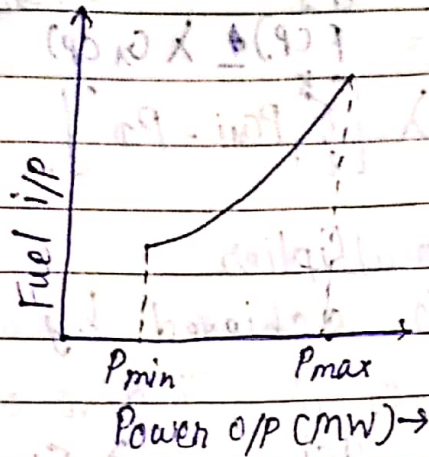 Fuel i/p
Pmin Pmax
Power o/p (MW) →